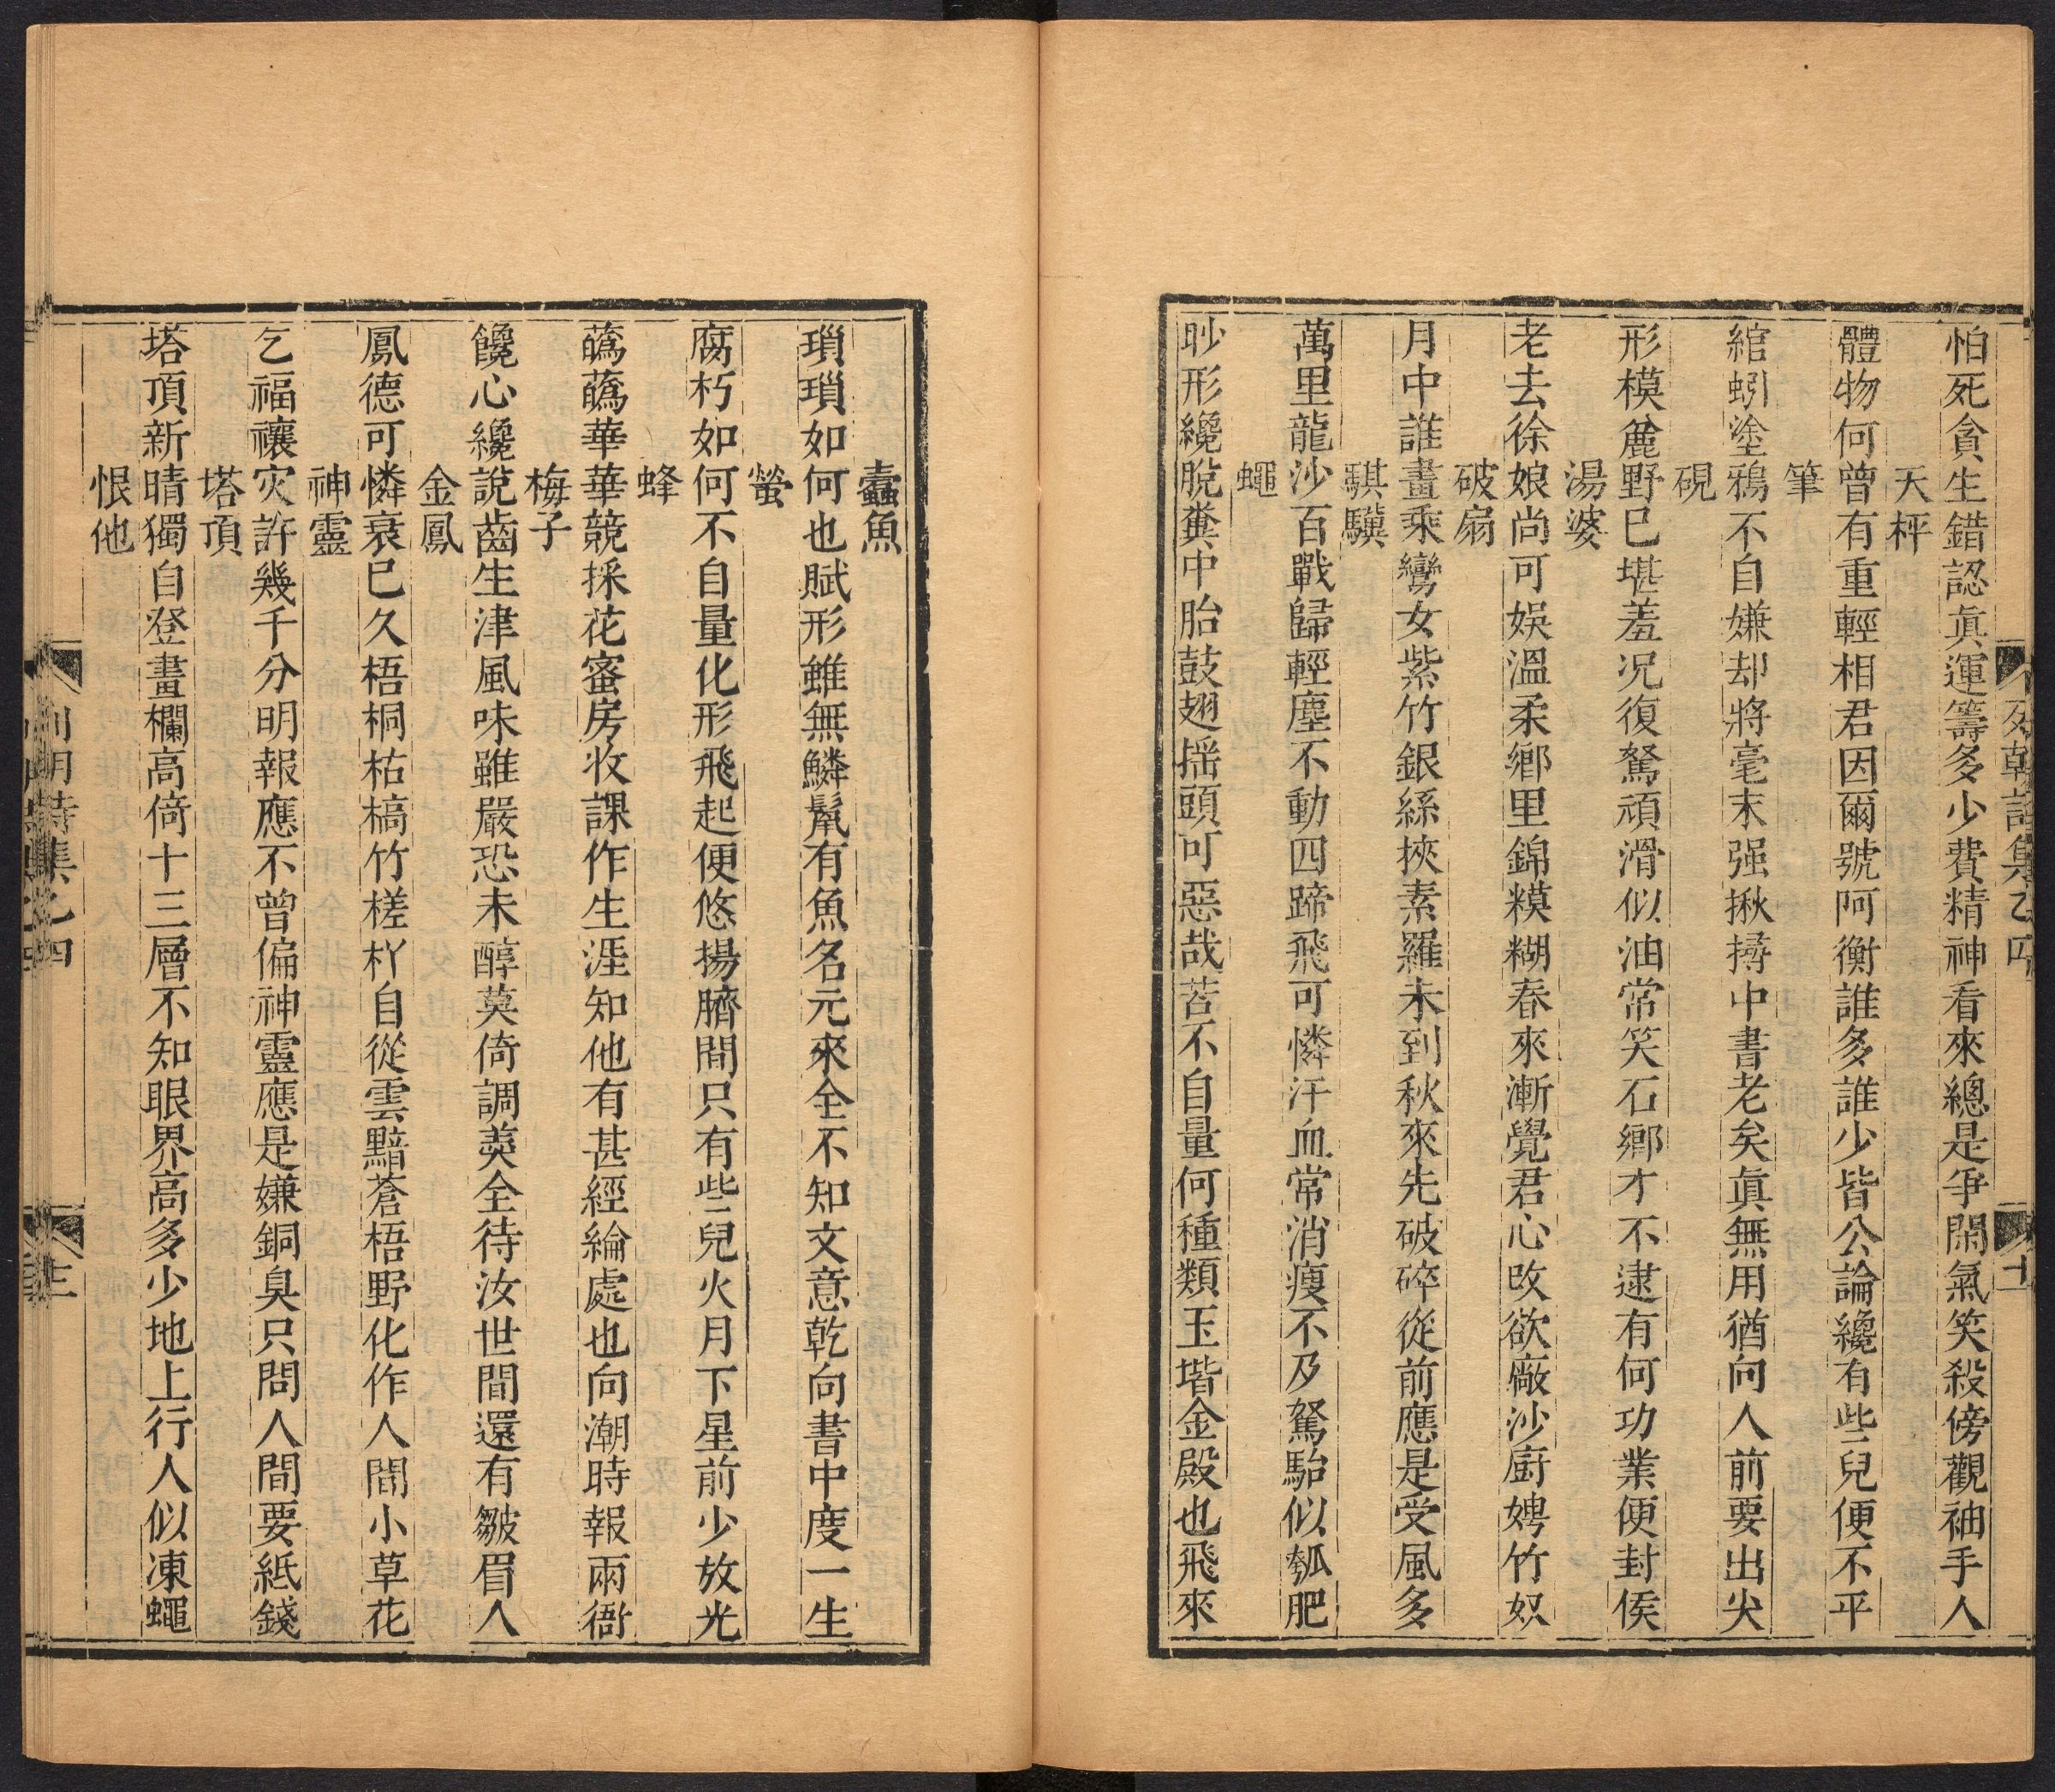 怕死貪生錯認眞運籌多少費精神看來總是爭閒氣笑殺傍觀袖手人
天枰
體物何曾有重輕相君因爾號阿衡誰多誰少皆公論纔有些兒便不平
筆
綰蚓塗鴉不自嫌却將毫末强揪撏中書老矣眞無用猶向人前要出尖
硯
形模麄野已堪羞况復駑頑滑似油常笑石鄉才不逮有何功業便封侯
湯婆
老去徐娘尚可娛溫柔鄉里錦糢糊春來漸覺君心改欲廠沙廚娉竹奴
破扇
月中誰畫乘鸞女紫竹銀絲挾素羅未到秋來先破碎從前應是受風多
騏驥
萬里龍沙百戰歸輕塵不動四蹄飛可憐汗血常消瘦不及駑駘似瓠肥
蠅
眇形纔脫糞中胎鼓翅揺頭可惡哉苦不自量何種類玉堦金殿也飛來
蠹魚
瑣瑣如何也賦形雖無鱗鬛有魚名元來全不知文意乾向書中度一生
螢
腐朽如何不自量化形飛起便悠揚臍間只有些兒火月下星前少放光
蜂
蘤蘤華華競採花蜜房收課作生涯知他有甚經綸處也向潮時報兩衙
梅子
饞心纔說齒生津風味雖嚴恐未醇莫倚調羮全待汝世間還有皺眉人
金鳳
鳳德可憐衰已久梧桐枯槁竹槎枒自從雲黯蒼梧野化作人間小草花
神靈
乞福禳灾許幾千分明報應不曾偏神靈應是嫌銅臭只問人間要紙錢
塔頂
塔頂新晴獨自登畫欄高倚十三層不知眼界高多少地上行人似凍蠅
恨他
列朝詩集乙四
三